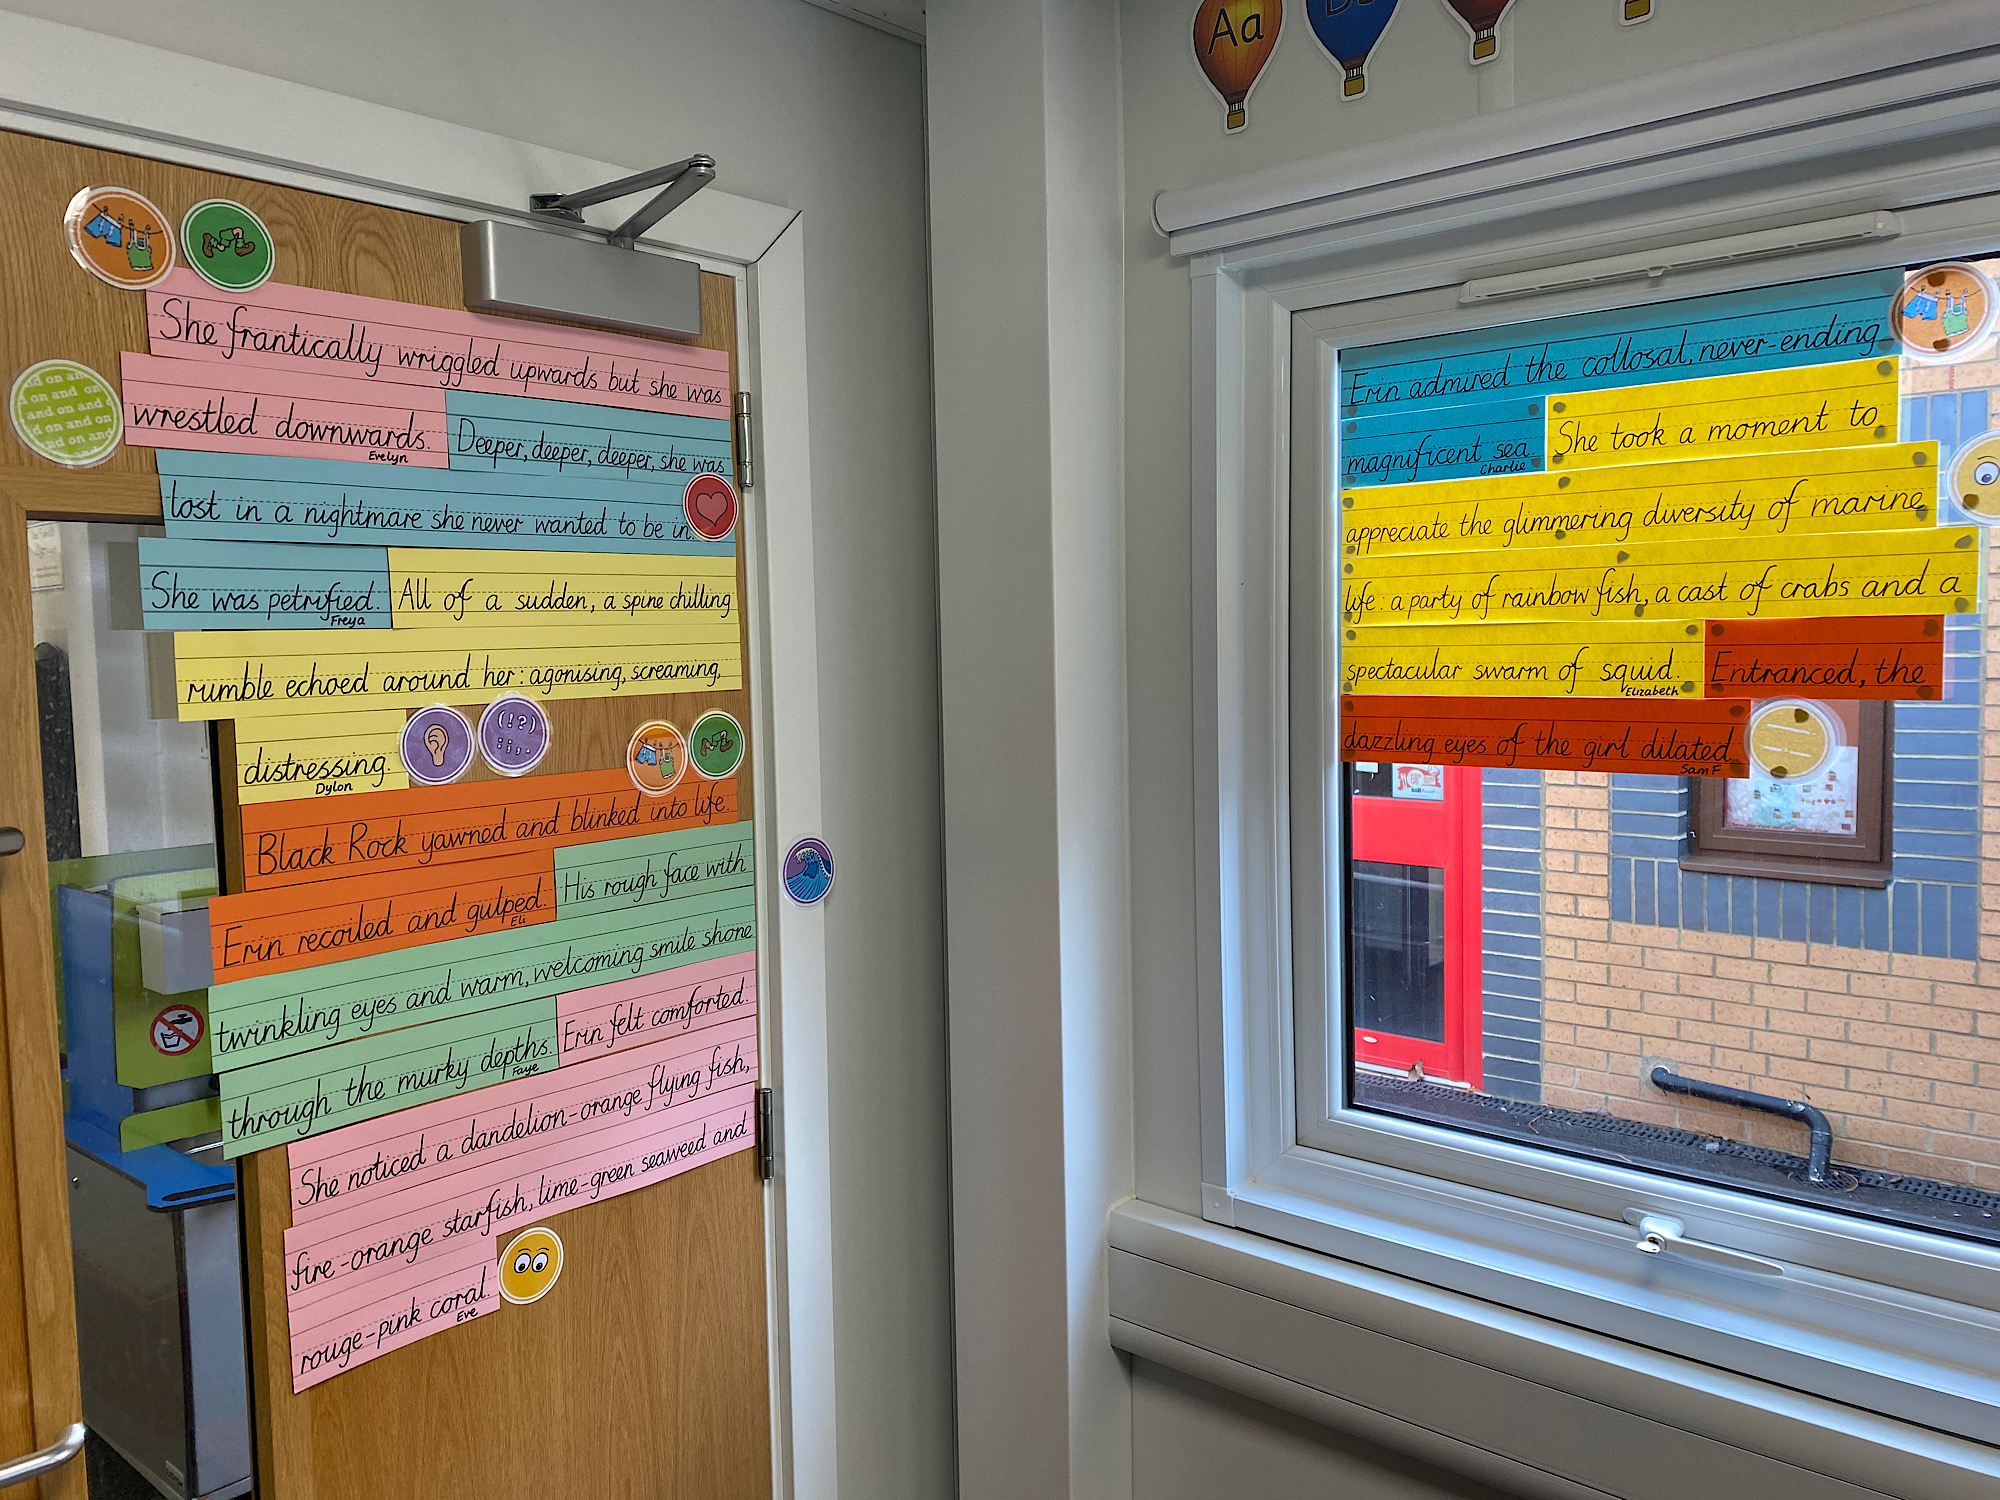 She frantically wriggled upwards but she was
wrestled downwards.
Evelyn
Deeper, deeper, deeper, she was
lost in a nightmare she never wanted to be in.
She was petrified.
Freya
All of a sudden, a spine chilling
rumble echoed around her: agonising, screaming,
distressing.
Dylon
(!?)
:;,.
Black Rock yawned and blinked into life.
Erin recoiled and gulped.
Eli
His rough face with
twinkling eyes and warm, welcoming smile shone
through the murky depths.
Faye
Erin felt comforted.
She noticed a dandelion-orange flying fish,
fire-orange starfish, lime-green seaweed and
rouge-pink coral.
Eve
and on and
on and on
and on and
and on and on
and on and
Aa
Erin admired the collosal, never-ending
magnificent sea.
Charlie
She took a moment to
appreciate the glimmering diversity of marine
life: a party of rainbow fish, a cast of crabs and a
spectacular swarm of squid.
Elizabeth
Entranced, the
dazzling eyes of the girl dilated.
Sam F